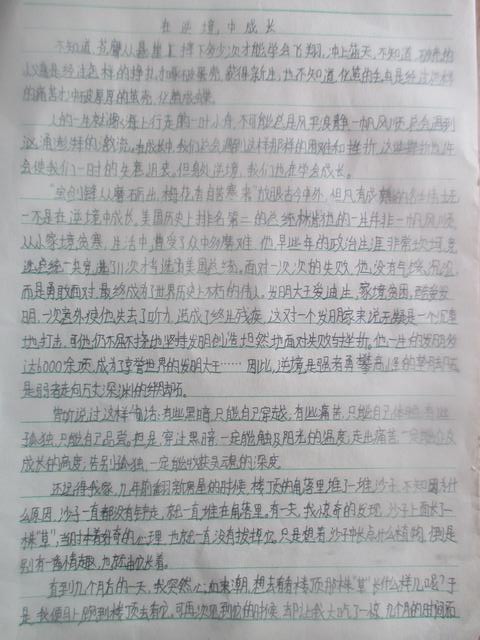 在逆境中成长
不知道,苍鹰从悬崖上摔下多少次才能学会飞翔,冲上蓝天,不知道,破壳的
小鸡是经过怎样的挣扎,才破壳,获得新生,也不知道,化茧的虫是经过怎样
的痛苦才冲破厚厚的茧壳,化茧成蝶。
人的一生就像海上行走的一叶小舟,不可能总是风平浪静一帆风顺,总会遇到
汹涌澎拜的激流。在成长中,我们总会遇到这样那样的困难和挫折,这些挫折也许
会使我们一时的失意沮丧,但身处逆境,我们也在学会成长。
“宝剑锋从磨砺出,梅花香自苦寒来”放眼古今中外,但凡有成就的名人伟士无
一不是在逆境中成长。美国历史上排名第二的总统林肯他的一生并非一帆风顺
从小家境贫寒,生活中,遭受了众多磨难,他早些年的政治生涯非常坎坷,竞
选总统一共竞选了11次才当选为美国总统。面对一次次的失败,他没有气馁、沉沦,
而是勇敢面对,最终成为了世界历史上不朽的伟人。发明大王爱迪生,家境贫困,酷爱发
明,一次意外使他失去了听力,造成了终生残疾,这对一个发明家来说无疑是一个沉重
地打击,可他仍不屈不挠地坚持发明创造,坦然地面对失败与挫折。他一生的发明多
达6000余项,成为了享誉世界的发明大王……因此,逆境是强者勇攀高峰的垫脚石
是弱者走向万丈深渊的绑脚石。
曾听说过这样一句话:有些黑暗,只能自己穿越,有些痛苦,只能自己体验;有些
孤独,只能自己品尝。但是,穿过黑暗,一定能触及阳光的温度,走出痛苦,一定能企及
成长的高度,告别孤独,一定能收获灵魂的深度。
还记得我家,几年前翻新房屋的时候,楼顶的角落里堆了一堆沙子,不知因为什
么原因,沙子一直都没有铲走,就一直堆在角落里。有一天,我惊奇的发现,沙子上面长了一
株“草”,当时本着好奇的心理,也就一直没有拔掉它。只是想着沙子中长点什么植物,倒是
别有一番情趣,也就由它长着。
直到几个月后的一天,我突然心血来潮,想去看看楼顶那株“草”长什么样儿了呢?于
是我便自上跑到楼顶去看它。可再次见到它的时候,却让我大吃了一惊,几个月的时间而